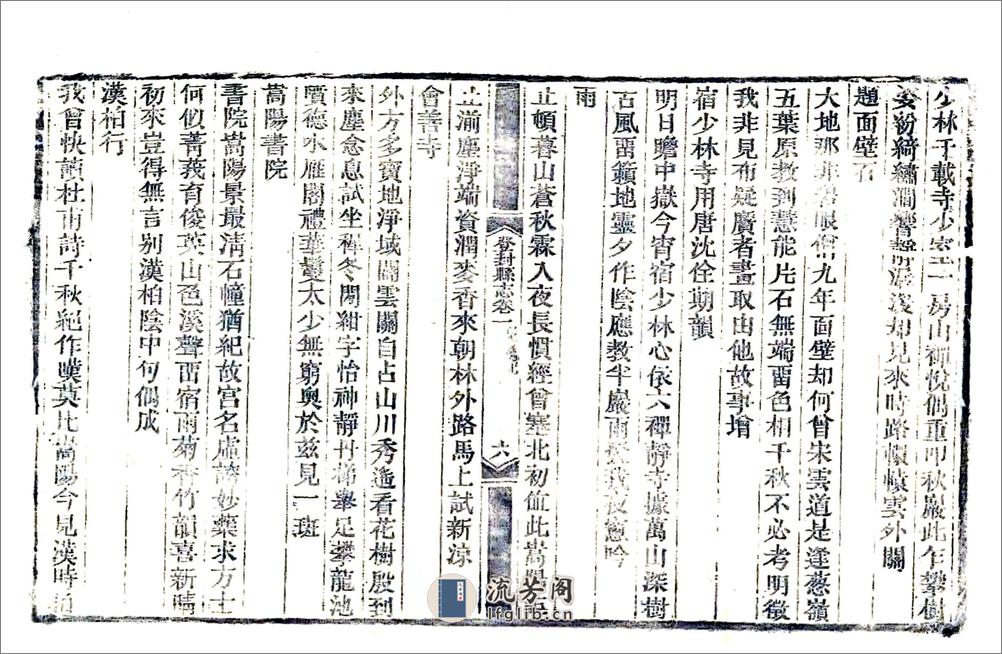 少林千載寺少室一房山禪悅偶重叩秋巖此乍攀樹
姿紛綺繡澗響靜潺湲却見來時路頓懷雲外關
題面壁石
大地那非碧眼僧九年面壁却何曾宋雲道是逢葱嶺
五葉原教到慧能片石無端留色相千秋不必考明徵
我非見布疑廣者畫取由他故事增
宿少林寺用唐沈佺期韻
明日瞻中嶽今宵宿少林心依六禪靜寺據萬山深樹
古風留籟地靈夕作陰應教半巖雨發我夜窻吟
雨
止頓暮山蒼秋霖入夜長慣經曾塞北初值此嵩陽
登封縣志卷一
六
止湔塵淨端資潤麥香來朝林外路馬上試新凉
會善寺
外方多寶地淨域闢雲關自占山川秀遙看花樹殷到
來塵愈息試坐禪冬閒紺宇怡神靜丹梯舉足攀龍池
質德水雁閣禮華鬘太少無窮奧於茲見一斑
嵩陽書院
書院嵩陽景最清石幢猶紀故宮名虛誇妙藥求方士
何似菁莪育俊英山色溪聲留宿雨菊香竹韻喜新晴
初來豈得無言别漢柏陰中句偶成
漢柏行
我曾快讀杜甫詩千秋絕作嘆莫比嵩陽今見漢時
流芳阁
lfglib.cn